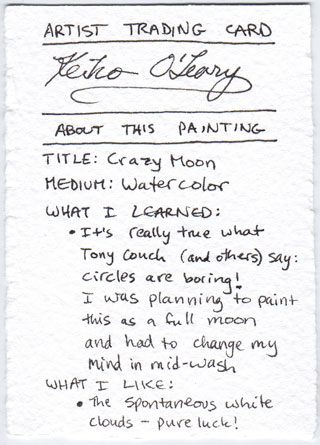 ARTIST TRADING CARD
Keiko O'Leary
ABOUT THIS PAINTING
TITLE: Crazy Moon
MEDIUM: Watercolor
WHAT I LEARNED:
• It's really true what
Tony Couch (and others) say:
circles are boring!
I was planning to paint
this as a full moon
and had to change my
mind in mid-wash
WHAT I LIKE:
• the spontaneous white
clouds – pure luck!